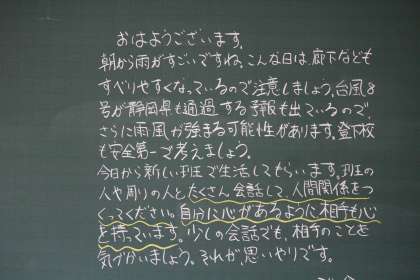 おはようございます。
朝から雨がすごいですね。こんな日は、廊下なども
すべりやすくなっているので注意しましょう。台風8
号が静岡県も通過する予報も出ているので、
さらに雨風が強まる可能性があります。登下校
も安全第一で考えましょう。
今日から新しい班で生活してもらいます。班の
人や周りの人とたくさん会話して、人間関係をつ
くってください。自分に心があるように相手も心
を持っています。少しの会話でも、相手のことを
気づかいましょう。それが、思いやりです。